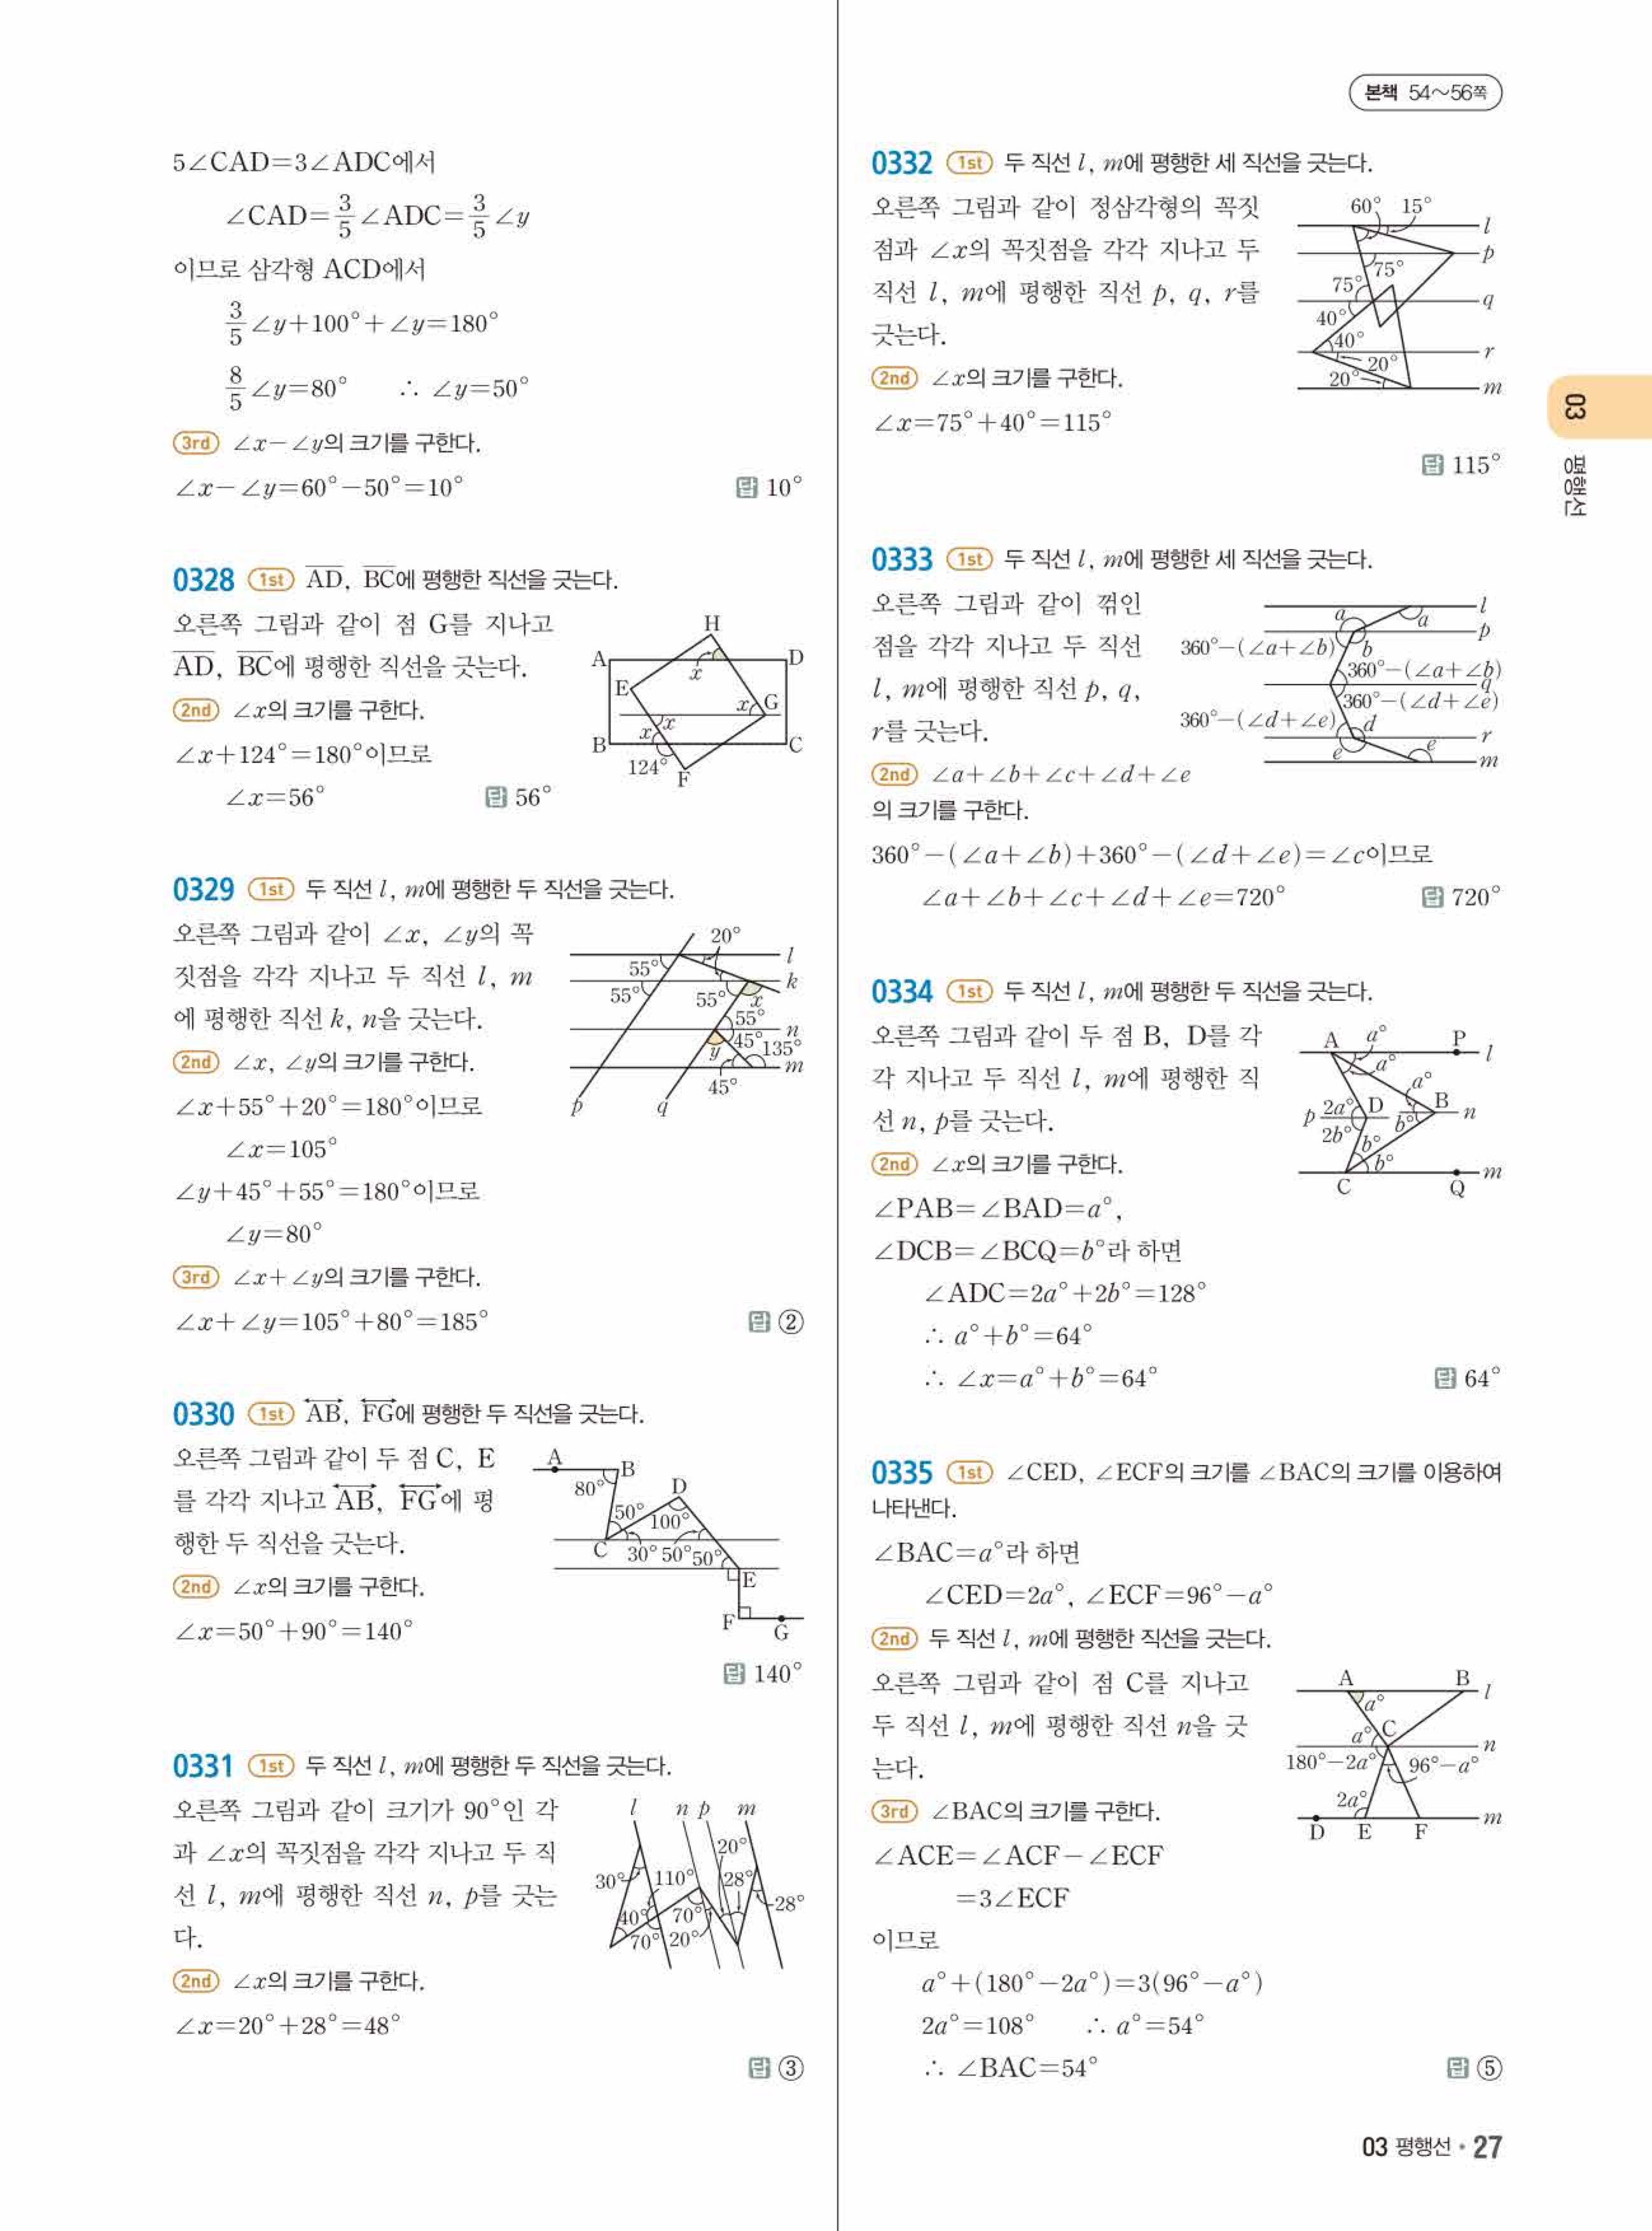 본책 54~56쪽
5∠CAD=3∠ADC에서
∠CAD=3/5∠ADC=3/5∠y
이므로 삼각형 ACD에서
3/5∠y+100°+∠y=180°
8/5∠y=80° ∴ ∠y=50°
3rd ∠x-∠y의 크기를 구한다.
∠x-∠y=60°-50°=10°
답 10°
0328 1st AD, BC에 평행한 직선을 긋는다.
오른쪽 그림과 같이 점 G를 지나고
AD, BC에 평행한 직선을 긋는다.
2nd ∠x의 크기를 구한다.
∠x+124°=180°이므로
∠x=56°
답 56°
H
A D
x
E
x G
x x
B C
124° F
0329 1st 두 직선 l, m에 평행한 두 직선을 긋는다.
오른쪽 그림과 같이 ∠x, ∠y의 꼭
짓점을 각각 지나고 두 직선 l, m
에 평행한 직선 k, n을 긋는다.
2nd ∠x, ∠y의 크기를 구한다.
∠x+55°+20°=180°이므로
∠x=105°
∠y+45°+55°=180°이므로
∠y=80°
3rd ∠x+∠y의 크기를 구한다.
∠x+∠y=105°+80°=185°
답 ②
20°
l
55°
k
55° 55° x
55°
n
y 45° 135°
m
45°
p q
0330 1st AB, FG에 평행한 두 직선을 긋는다.
오른쪽 그림과 같이 두 점 C, E
를 각각 지나고 AB, FG에 평
행한 두 직선을 긋는다.
2nd ∠x의 크기를 구한다.
∠x=50°+90°=140°
답 140°
A
B
80° D
50° 100°
C 30° 50° 50°
E
F
G
0331 1st 두 직선 l, m에 평행한 두 직선을 긋는다.
오른쪽 그림과 같이 크기가 90°인 각
과 ∠x의 꼭짓점을 각각 지나고 두 직
선 l, m에 평행한 직선 n, p를 긋는
다.
2nd ∠x의 크기를 구한다.
∠x=20°+28°=48°
답 ③
l n p m
20°
30° 110° 28°
28°
40° 70°
70° 20°
0332 1st 두 직선 l, m에 평행한 세 직선을 긋는다.
오른쪽 그림과 같이 정삼각형의 꼭짓
점과 ∠x의 꼭짓점을 각각 지나고 두
직선 l, m에 평행한 직선 p, q, r를
긋는다.
2nd ∠x의 크기를 구한다.
∠x=75°+40°=115°
답 115°
60° 15°
l
p
75°
75°
q
40°
40°
r
20°
20°
m
0333 1st 두 직선 l, m에 평행한 세 직선을 긋는다.
오른쪽 그림과 같이 꺾인
점을 각각 지나고 두 직선
l, m에 평행한 직선 p, q,
r를 긋는다.
2nd ∠a+∠b+∠c+∠d+∠e
의 크기를 구한다.
360°-(∠a+∠b)+360°-(∠d+∠e)=∠c이므로
∠a+∠b+∠c+∠d+∠e=720°
답 720°
l
a a
p
360°-(∠a+∠b) b
360°-(∠a+∠b)
q
360°-(∠d+∠e)
360°-(∠d+∠e) d
r
e e
m
0334 1st 두 직선 l, m에 평행한 두 직선을 긋는다.
오른쪽 그림과 같이 두 점 B, D를 각
각 지나고 두 직선 l, m에 평행한 직
선 n, p를 긋는다.
2nd ∠x의 크기를 구한다.
∠PAB=∠BAD=a°,
∠DCB=∠BCQ=b°라 하면
∠ADC=2a°+2b°=128°
∴ a°+b°=64°
∴ ∠x=a°+b°=64°
답 64°
A a° P
l
a°
a°
2a° D B
p n
2b° b°
b°
b°
m
C Q
0335 1st ∠CED, ∠ECF의 크기를 ∠BAC의 크기를 이용하여
나타낸다.
∠BAC=a°라 하면
∠CED=2a°, ∠ECF=96°-a°
2nd 두 직선 l, m에 평행한 직선을 긋는다.
오른쪽 그림과 같이 점 C를 지나고
두 직선 l, m에 평행한 직선 n을 긋
는다.
3rd ∠BAC의 크기를 구한다.
∠ACE=∠ACF-∠ECF
=3∠ECF
이므로
a°+(180°-2a°)=3(96°-a°)
2a°=108° ∴ a°=54°
∴ ∠BAC=54°
답 ⑤
A B
l
a°
a° C
n
180°-2a° 96°-a°
2a°
m
D E F
03 평행선
03 평행선 • 27